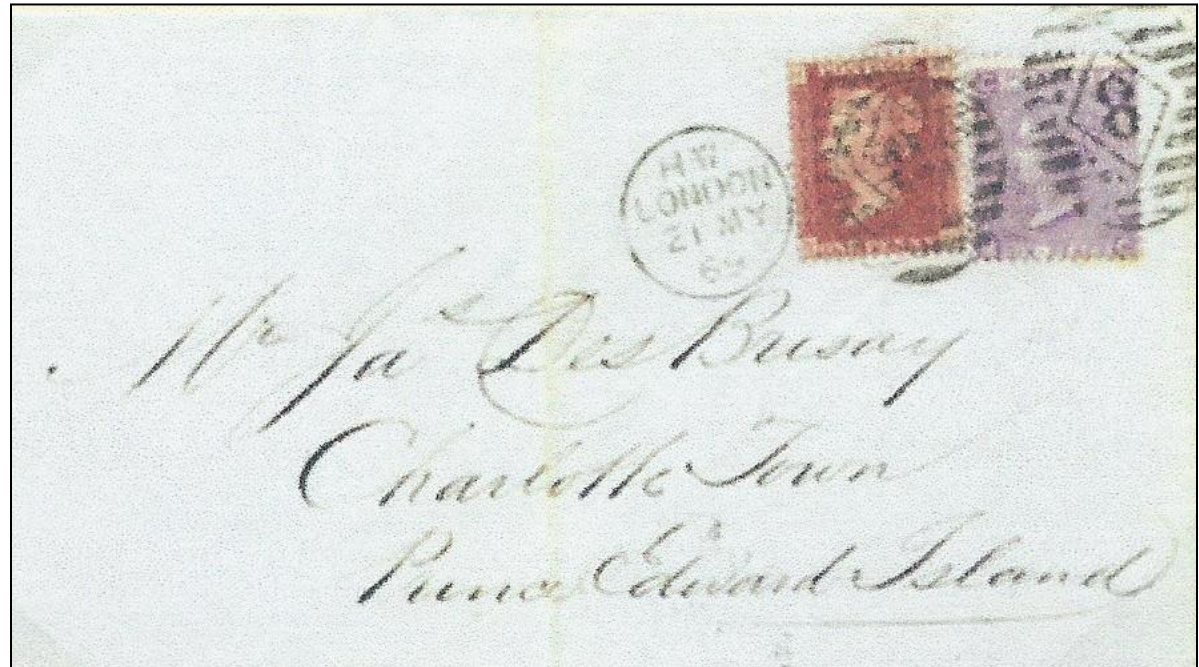 H W
LONDON
21 MY
69
8
Mr Jas Des Brisay
Charlotte Town
Prince Edward Island